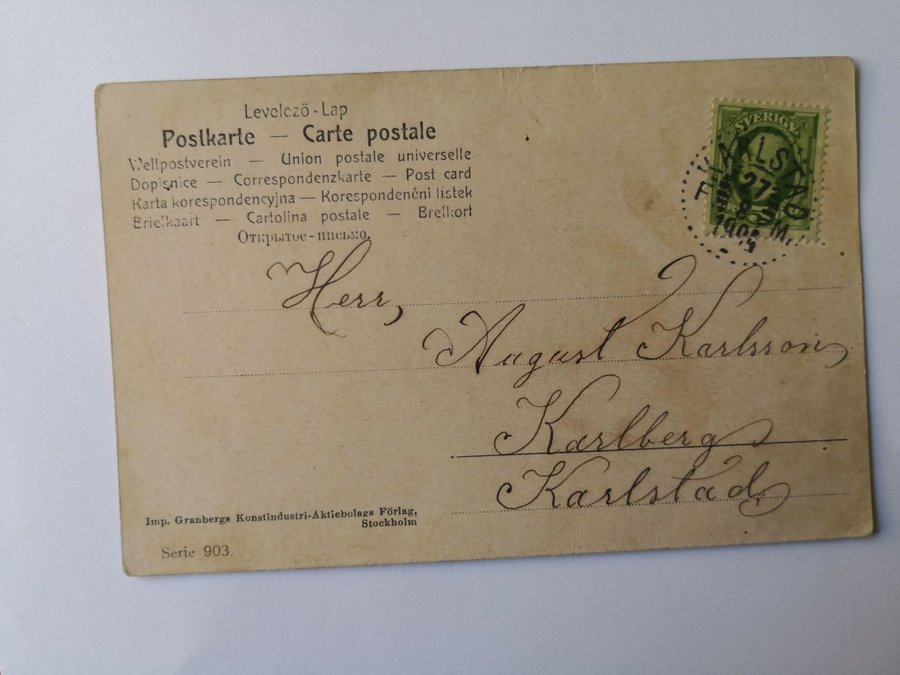 Levelező-Lap
Postkarte — Carte postale
Weltpostverein — Union postale universelle
Dopisnice — Correspondenzkarte — Post card
Karta korespondencyjna — Korespondenční lístek
Briefkaart — Cartolina postale — Brefkort
Открытое-письмо.
SVERIGE
KARLSTAD
27
9
1905
Herr,
August Karlsson,
Karlberg
Karlstad,
Imp. Granbergs Konstindustri-Aktiebolags Förlag,
Stockholm
Serie 903.